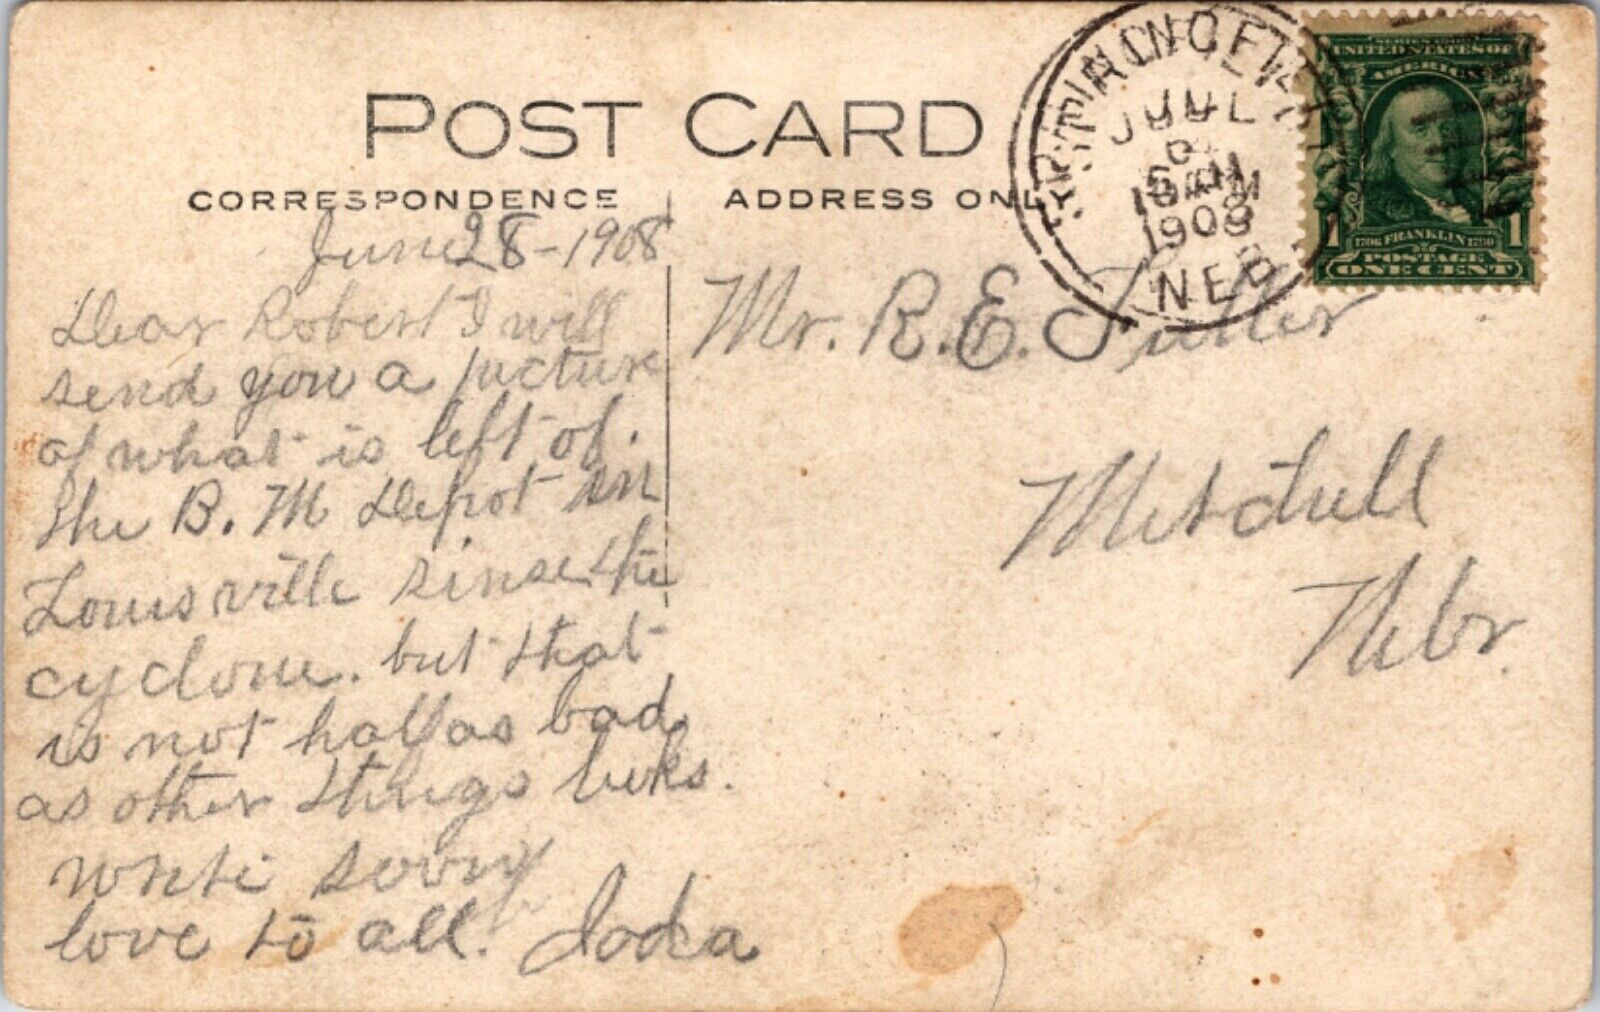 POST CARD
CORRESPONDENCE
ADDRESS ONL
June 28-1908
Dear Robert I will
send you a picture
of what is left of.
the B. M Depot in
Louisville sinse the
cyclone. but that
is not half as bad
as other things looks.
write soon
love to all.
Mr. R. E. Fuller
Mitchell
Nebr.
JUL
1908
NEB
SERIES 1902
UNITED STATES OF
AMERICA
1706 FRANKLIN 1790
POSTAGE
1 ONE CENT 1